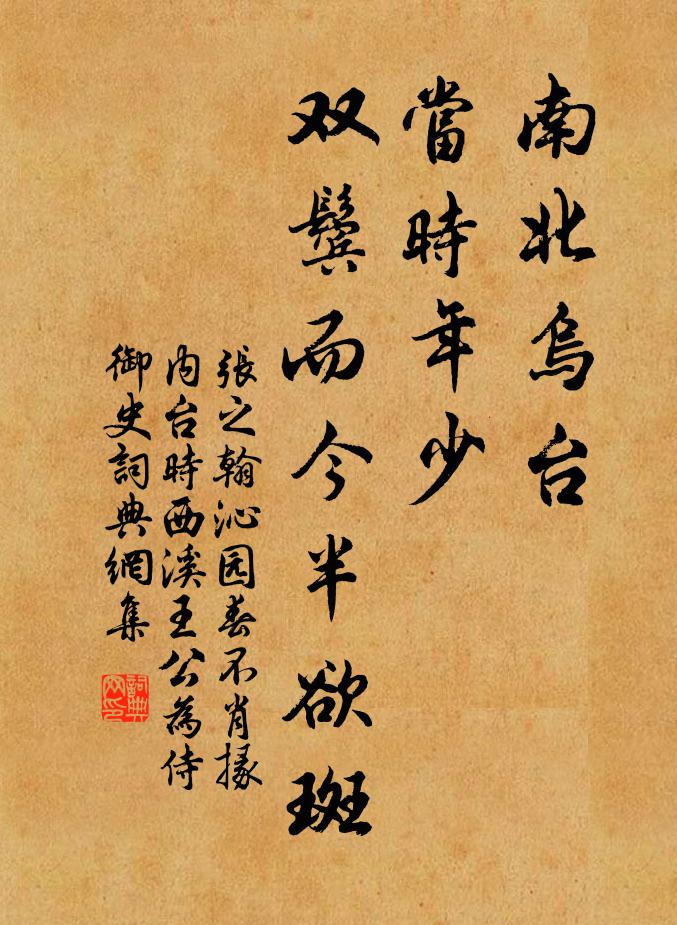 南北烏台
當時年少
双鬢而今半欲斑
張之翰沁园春不肖掾
内台時西溪王公為侍
御史詞典網集
詞典
网印